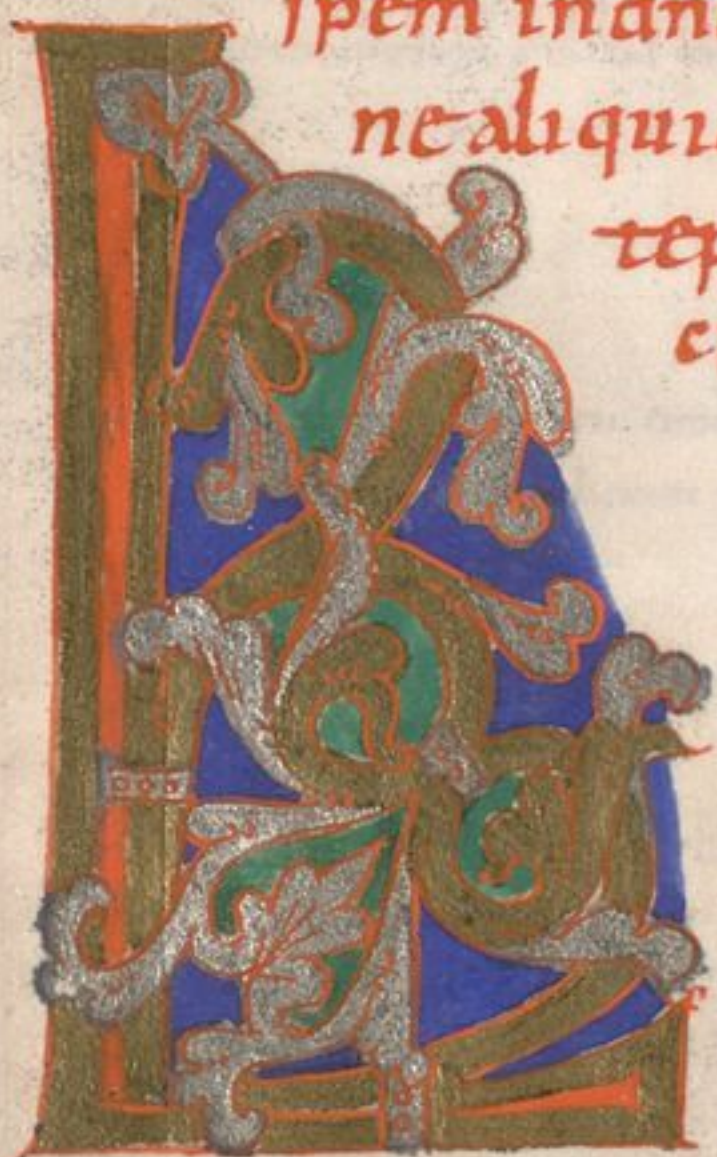 spem in an
ne aliqui
tep
c
L